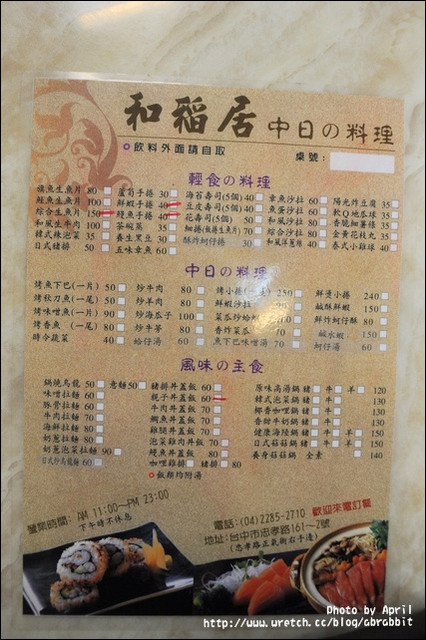 和稲居 中日の料理
飲料外面請自取
桌號:
輕食の料理
旗魚生魚片 80
鮭魚生魚片 100
綜合生魚片 150
和風生牛肉 100
韓式辣泡菜 35
日式豬排 50
蘆筍手捲 30
鮮蝦手捲 40
鰻魚手捲 40
茶碗蒸 35
養生黑豆 30
五味章魚 60
海苔壽司(5個) 40
豆皮壽司(5個) 40
花壽司(5個) 50
細捲
酥炸蚵仔捲
章魚沙拉 60
魚蛋沙拉 60
和風沙拉 80
綜合沙拉 80
和風洋蔥絲 40
陽光炸豆腐 35
軟Q地瓜球 35
香脆細薯條 35
金黃花枝丸 35
泰式小雞球 40
中日の料理
烤魚下巴(一片) 50
烤秋刀魚(一尾) 50
烤味噌魚(一片) 90
烤香魚 (一尾) 80
時令蔬菜 40
炒牛肉 80
炒羊肉 80
炒海瓜子 100
炒牛蒡 80
蛤仔湯 60
烤小捲(一支) 250
鮮蝦沙拉
香炸菜瓜
魚下巴味噌湯 70
鮮燙小捲 240
鹹酥鮮蝦 150
鮮炸蚵仔酥 80
鹹水蝦 150
蚵仔湯 60
風味の主食
鍋燒烏龍 50 意麵 50
味噌拉麵 60
豚骨拉麵 60
牛肉拉麵 70
海鮮拉麵 80
奶蔥拉麵 80
奶蔥泡菜拉麵 90
日式炒烏龍麵 60
豬排丼蓋飯 60
親子丼蓋飯 60
牛肉丼蓋飯 70
鯛魚丼蓋飯 70
雞腿丼蓋飯 70
泡菜雞肉丼飯 70
鰻魚丼蓋飯 80
咖哩雞排 豬排 80
飯類均附湯
原味高湯鍋 豬 牛 羊 120
韓式泡菜鍋 豬 牛 130
椰香咖哩鍋 豬 牛 130
香甜牛奶鍋 豬 牛 130
健康海陸鍋 豬 牛 羊 150
日式菇菇鍋 豬 牛 羊 150
養身菇菇鍋 全素 140
營業時間: AM 11:00~PM 23:00
下午時不休息
電話:(04)2285-2710 歡迎來電訂餐
地址:台中市忠孝路161~2號
(忠孝路正氣街右手邊)
Photo by April
http://www.wretch.cc/blog/abrabbit